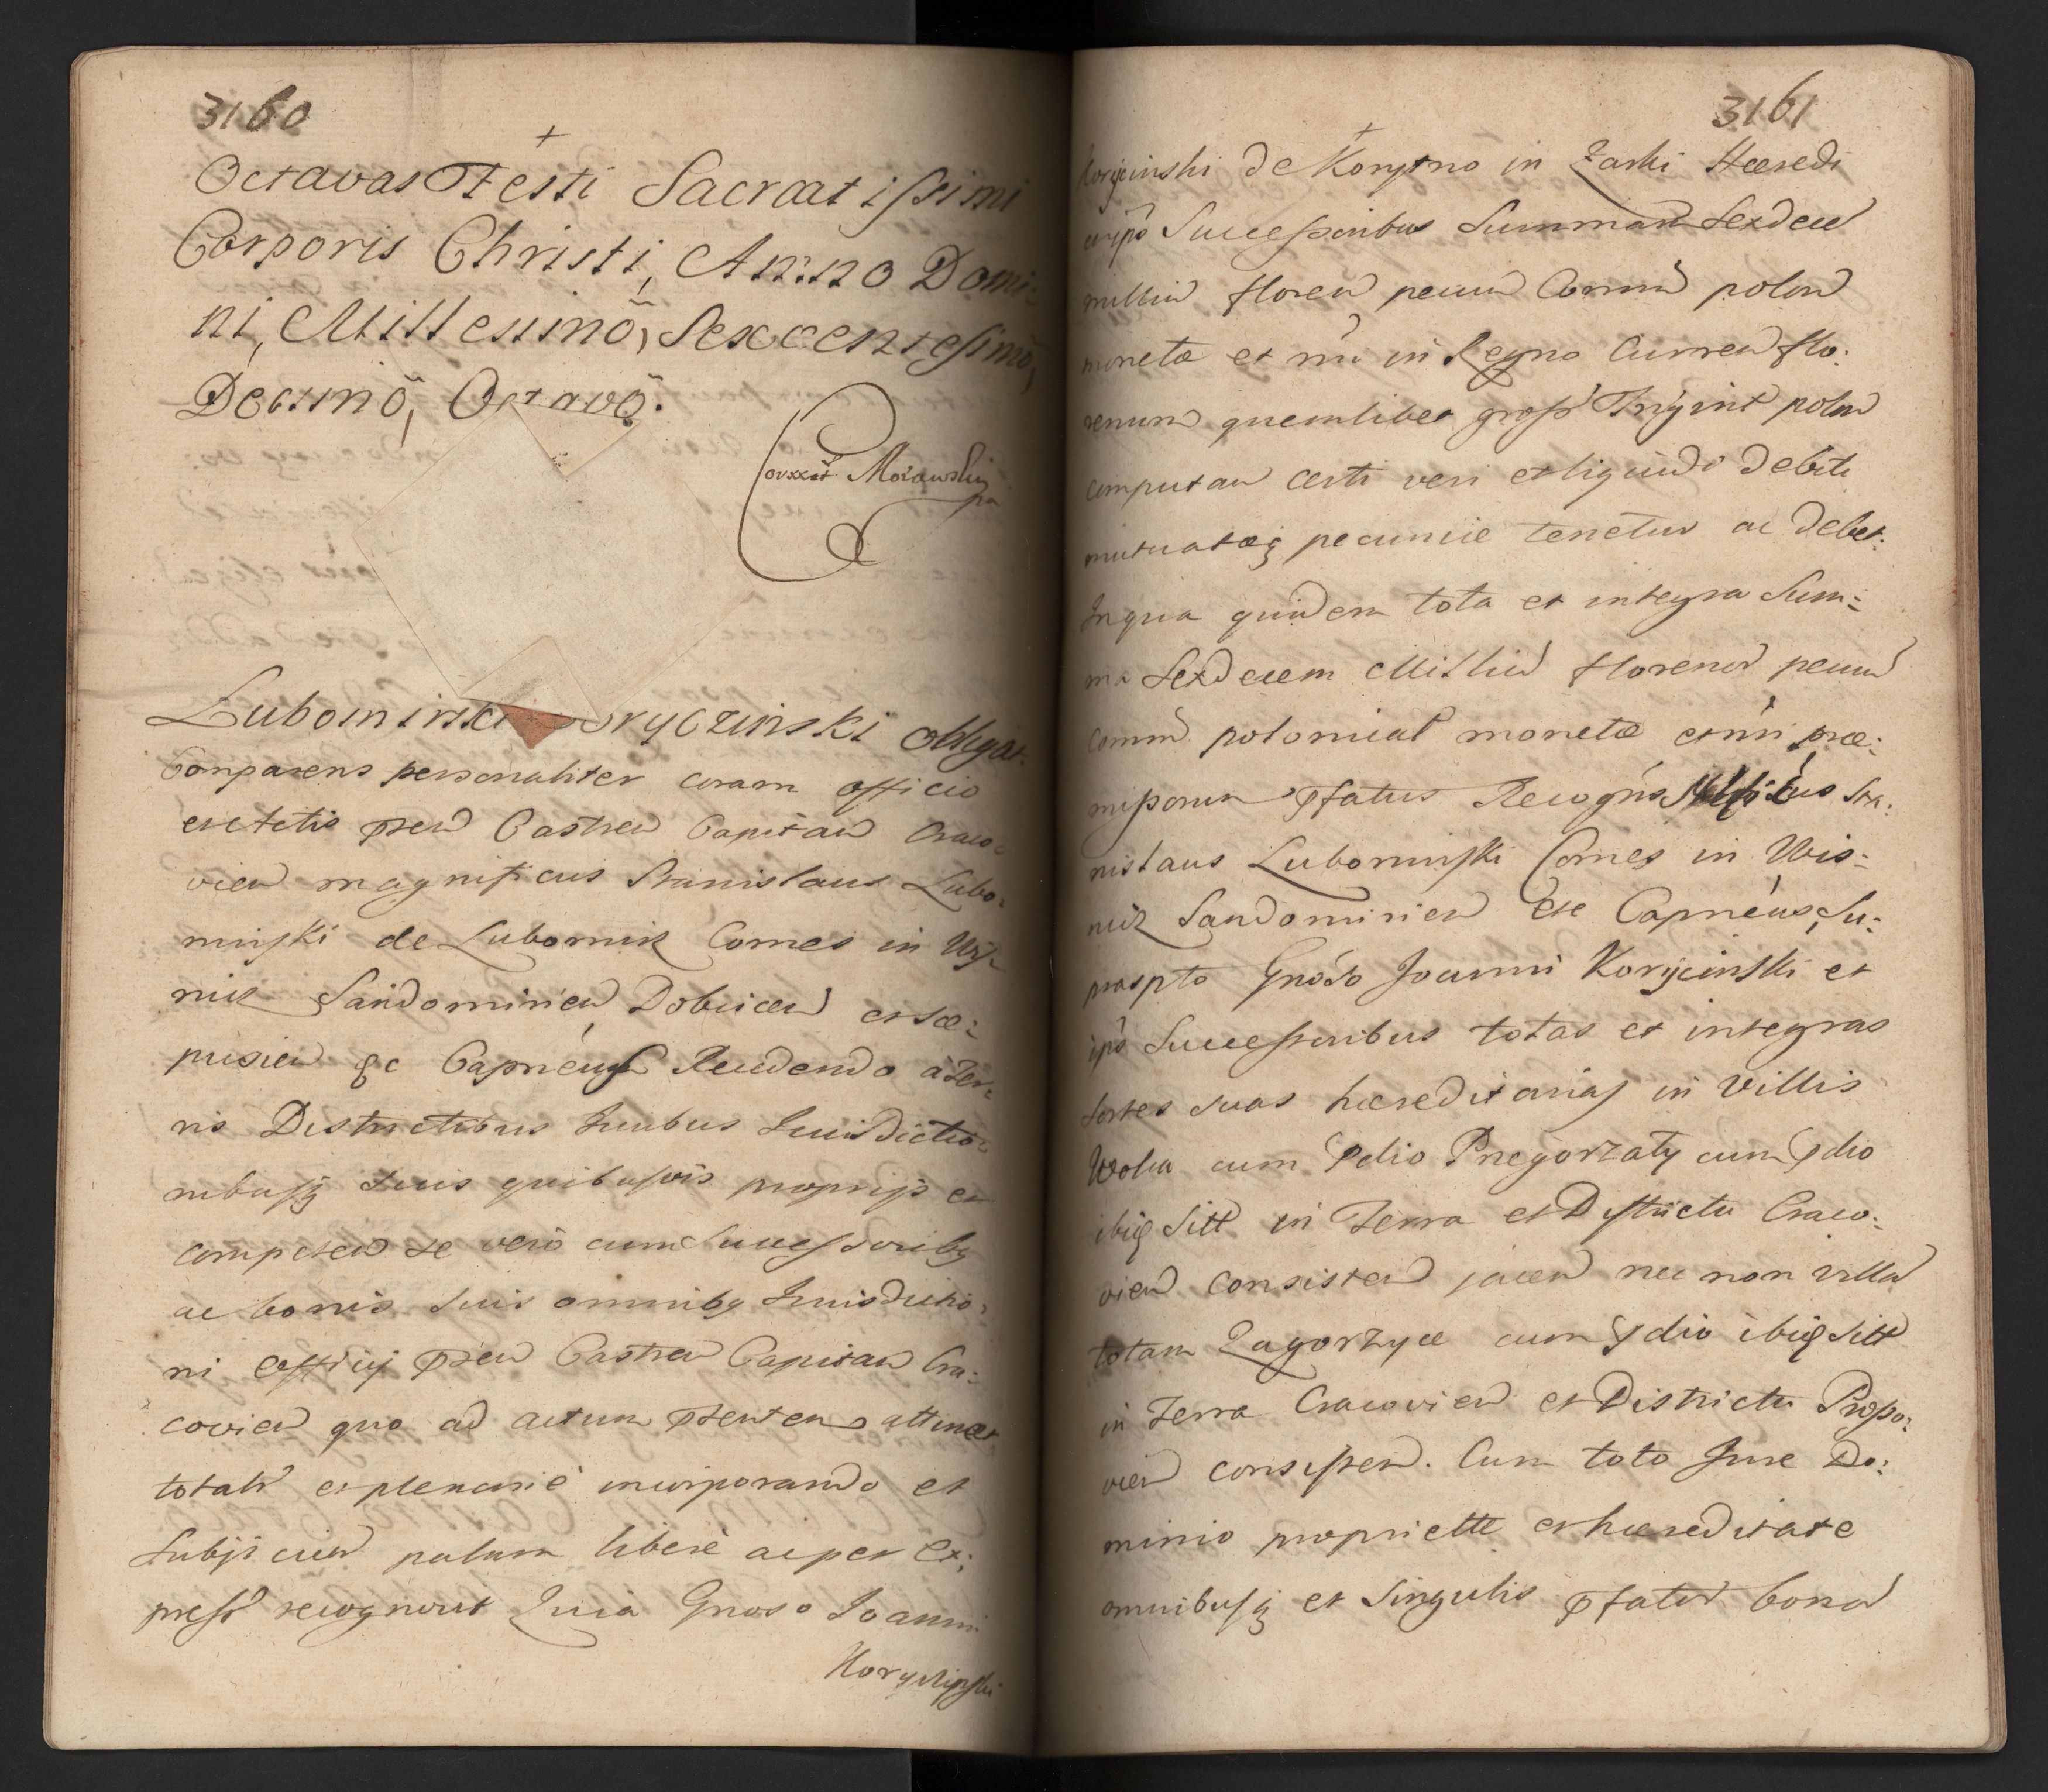 3160
Octavas Festi Sacrat issimi
Corporis Christi, Anno Domi:
ni, Millesimo, Sexcentesimo,
Decimo, Octavo.
Correxit Morawski
Lubomirski Koryczinski obligat.
Comparens personaliter coram officio
et actis pren Castren Capitan Craco:
vien magnificus Stanislaus Lubo:
mirski de Lubomirz Comes in Wis
nicz Sandomirien Dobcicen et Sce:
pusien &c Capneus Recedendo a Ter:
ris Districtibus Juribus Jurisdictio:
nibusq suis quibusvis proprijs et
competen se vero cum Successoribq
ac bonis suis omnibq Jurisdictio:
ni officij pren Castren Capitan Cra:
covien quo ad actum pntem attinet
totalr et plenarie incorporando et
subjicien palam libere ac per ex:
press recognovit Quia Gnoso Joanni
Korycinski
3161
Korycinski de Korytno in Zarki Hæredi
eiusq ips Successoribus Summam Sexdecem
milliu floren pecun Comm polon
monetæ et nri in Regno Curren flo:
renum quemlibet gross Trigint polon
computan certi veri et liquidi debiti
mutuatæq pecuniæ tenetur ac debet.
In qua quidem tota et integra Sum:
ma Sexdecem Milliu florenor pecun
comm polonical monetæ et nri præ:
missorum pfatus Recogns Mgficus Sta:
nislaus Lubomirski Comes in Wis:
nicz Sandomirien etc Capneus, Su:
praspto Gnoso Joanni Korycinski et
ips Successoribus totas et integras
sortes suas hæreditarias in Villis
Wola cum pdio Przegorzaty cum pdio
ibiq Sitt in Terra et Districtu Craco:
vien consisten jacen nec non villa
totam Zagorzyce cum pdio ibiq Sitt
in Terra Cracovien et Districtu Proszo:
vien consisten. Cum toto Jure Do:
minio propriette et hæreditate
omnibusq et Singulis pfator bonor